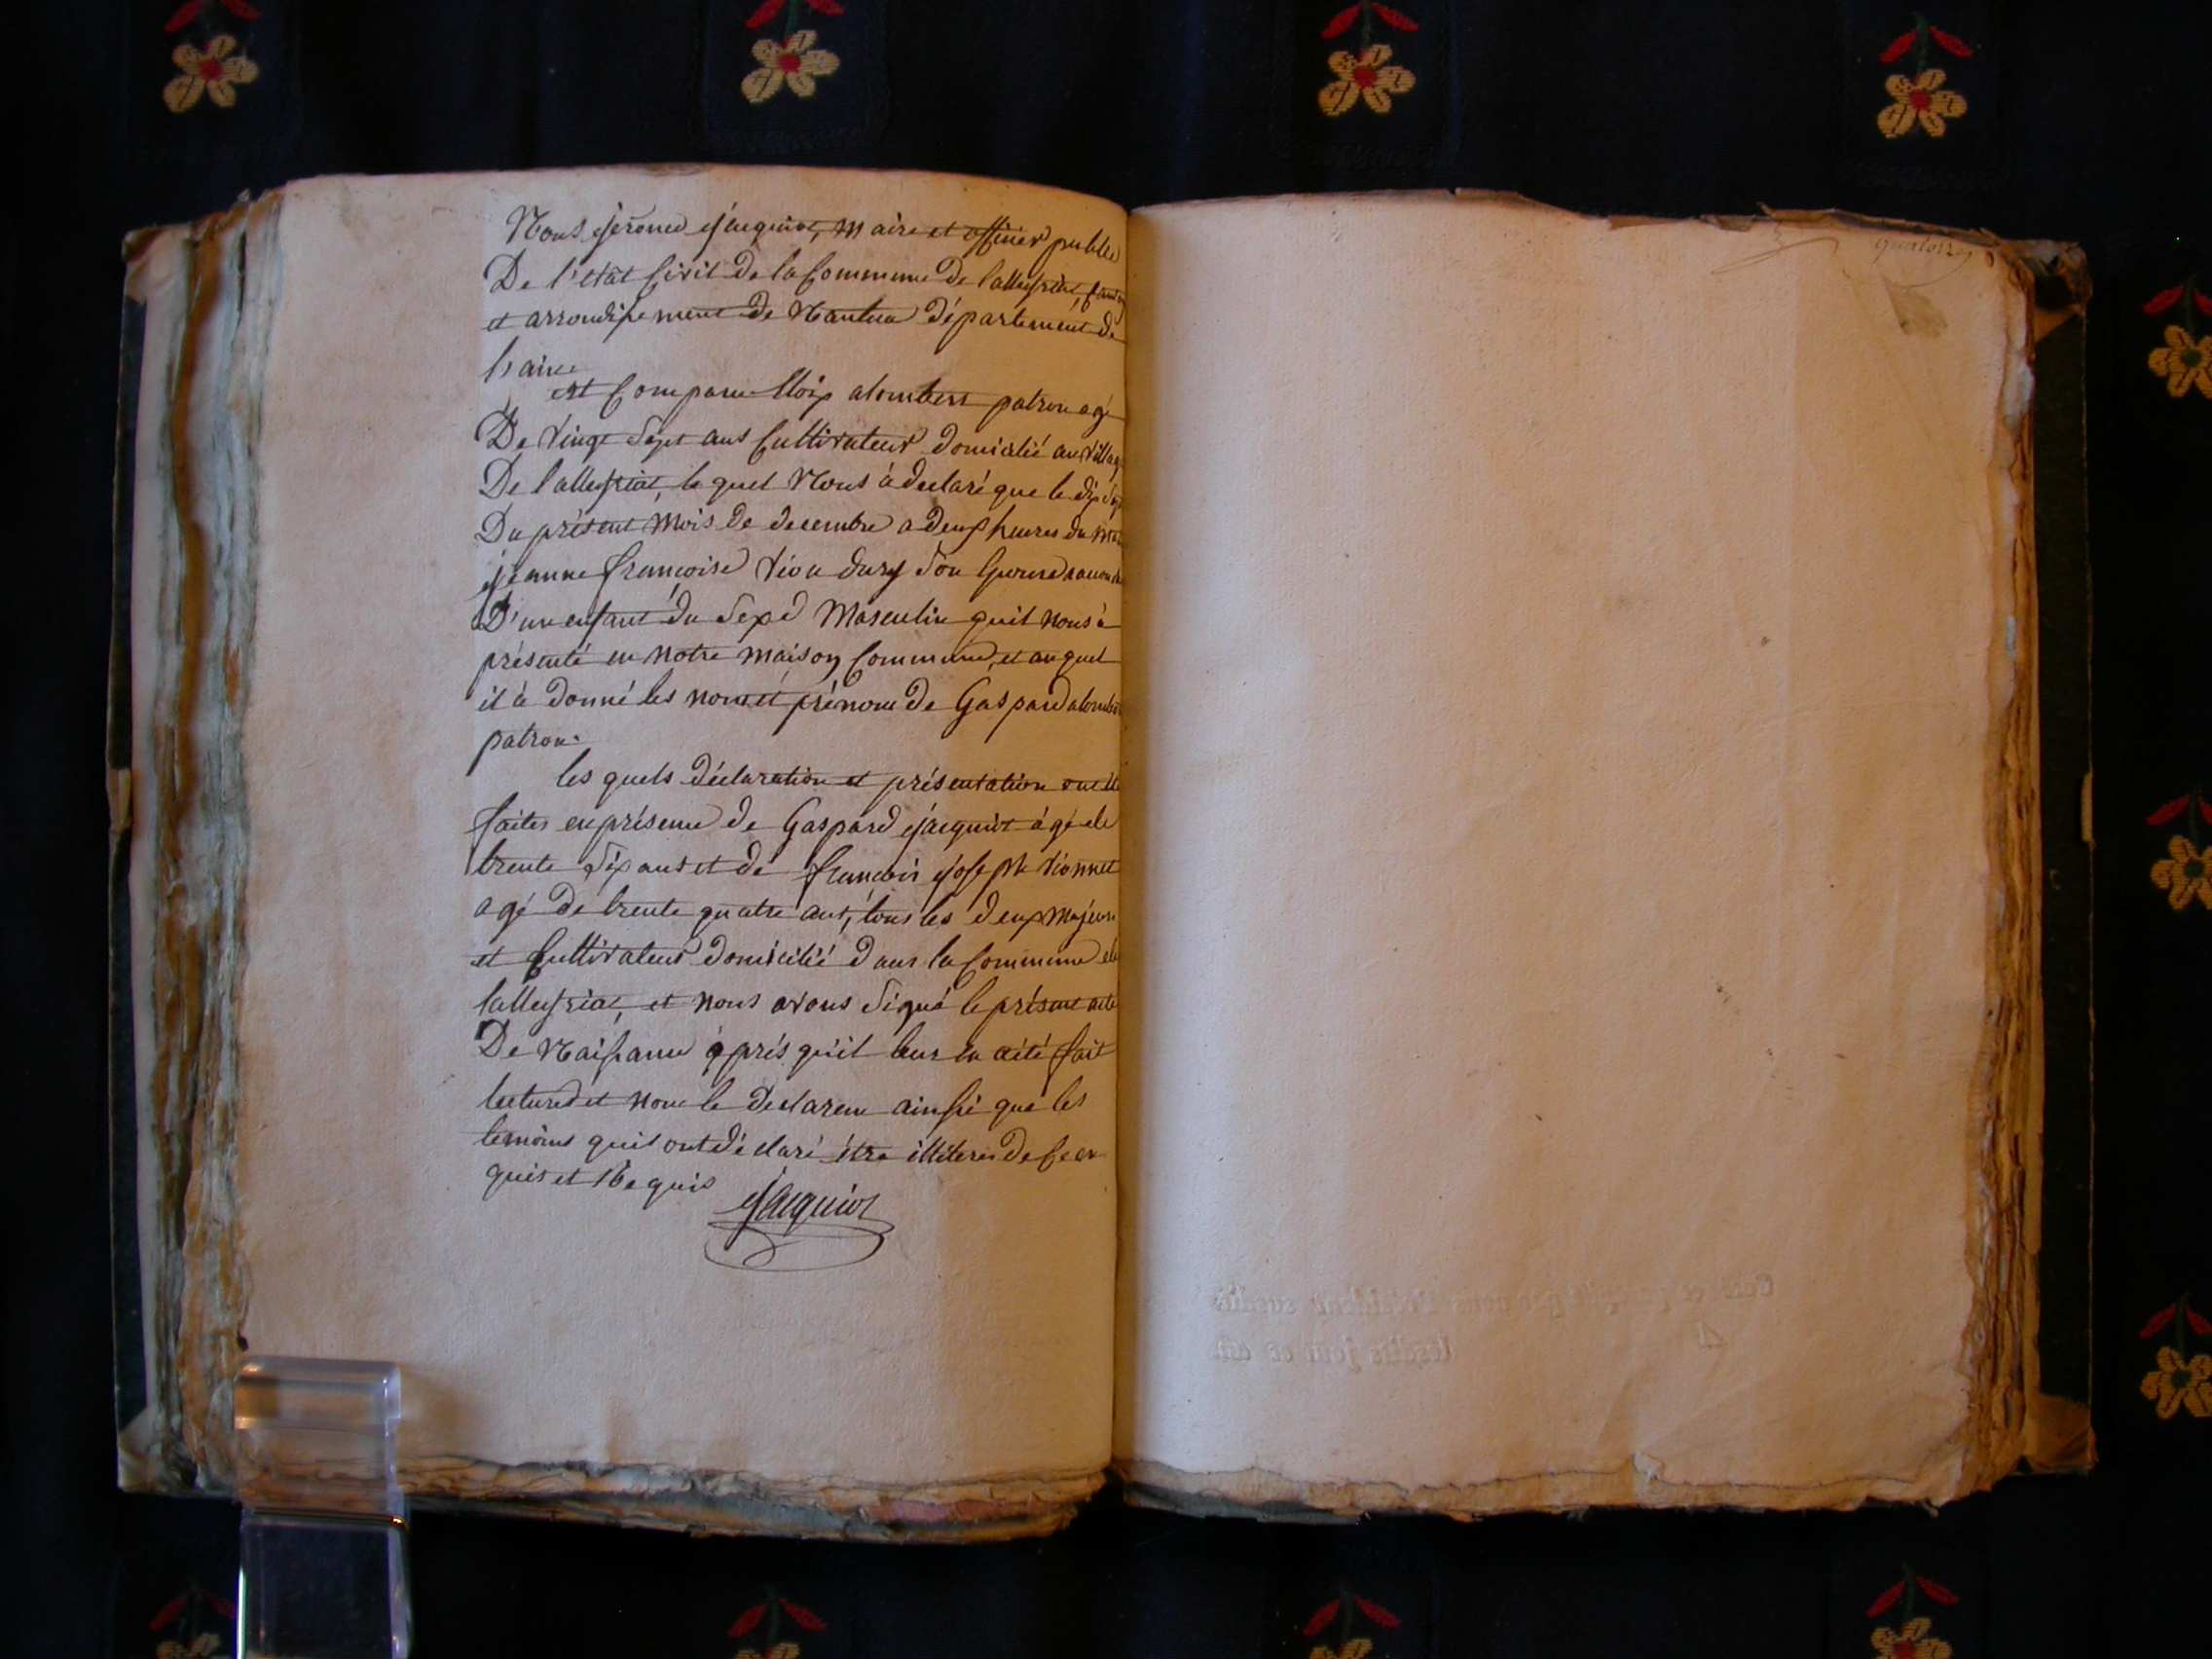 Nous jérome jacquiot, Maire et officier public
De l'etat Civil De la Commune De Lalleyriat, canton
et arrondissement De Nantua Département de
l'ain
est Comparu alombert patron agé
De Vingt Sept ans Cultivateur Domicilié au Village
De Lalleyriat, le quel Nous à declaré que le dix Sept
Du présent Mois de decembre a deux heures du Matin
jeanne françoise Son
D'un enfant du Sexe Masculin qu'il nous à
présenté en notre maison Commune, et auquel
il à donné les nom et prénom de Gaspard alombert
patron.
les quels déclaration et présentation
faites en présence de Gaspard jacquiot âgé de
trente Six ans et de françois joseph Vionnet
agé De trente quatre ans, tous les deux Majeurs
et Cultivateurs domicilié dans la Commune de
lalleyriat, et nous avons Signé le présent acte
De Naissance après qu'il leur en aété fait
lecture et non le declarent ainssi que les
temoins quis ont dé claré être illiteres de Ce en
quis et Requis
jacquiot
quatorze